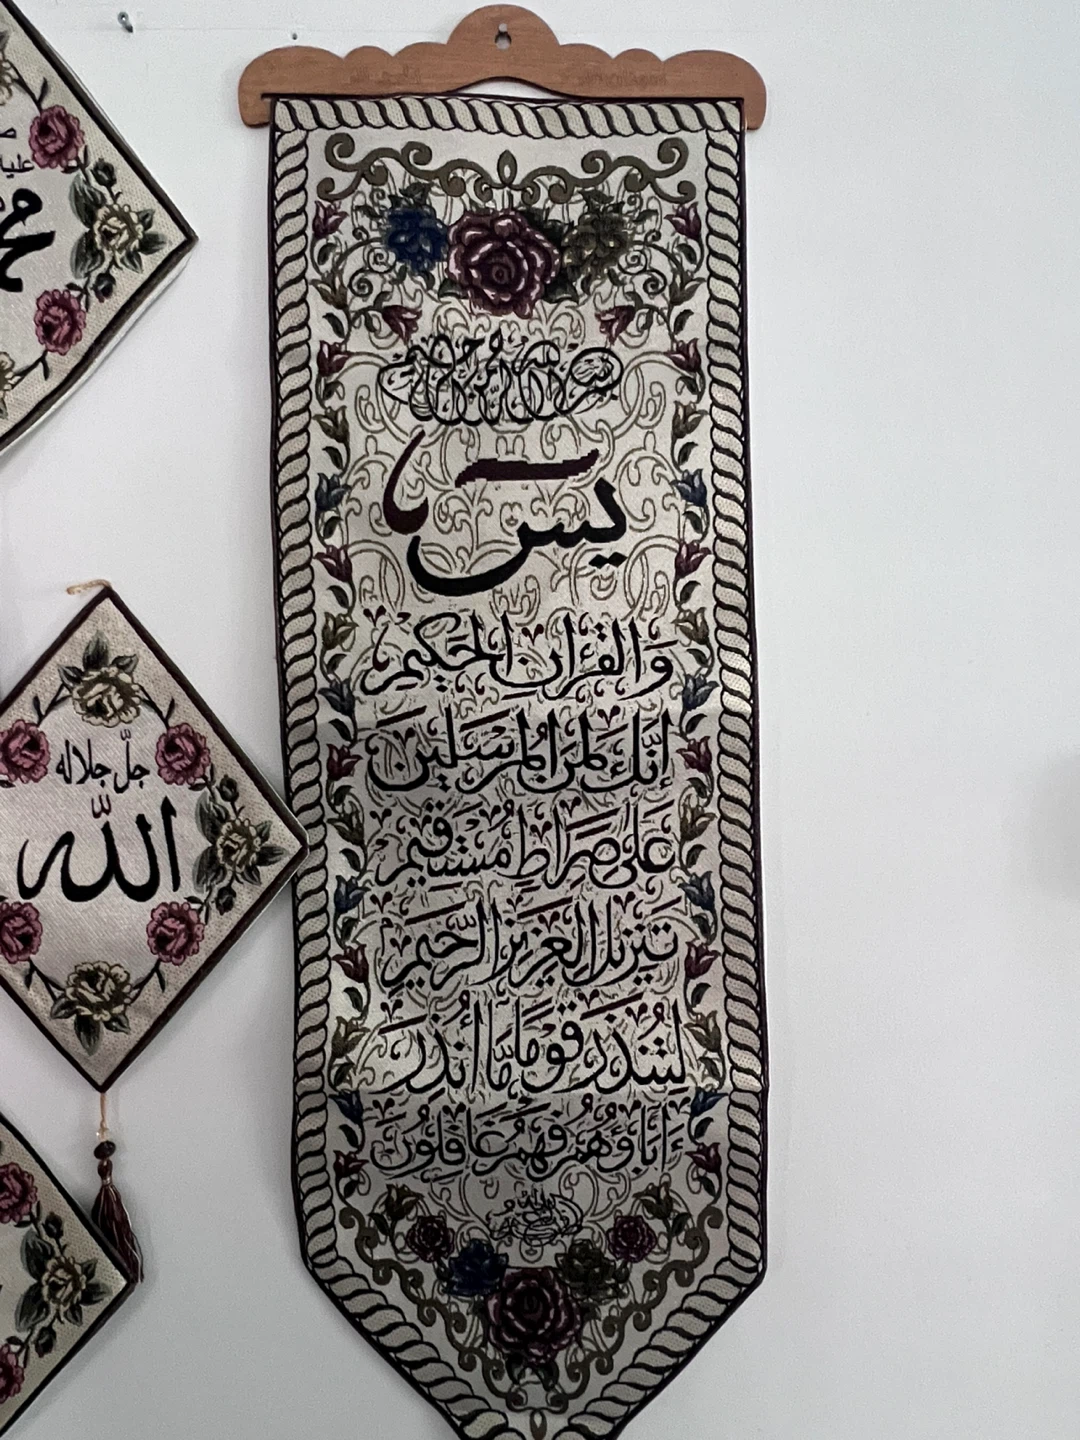 بسم الله الرحمن الرحيم
يس
وَالْقُرْءَانِ الْحَكِيمِ
إِنَّكَ لَمِنَ الْمُرْسَلِينَ
عَلَىٰ صِرَاطٍ مُسْتَقِيمٍ
تَنزِيلَ الْعَزِيزِ الرَّحِيمِ
لِتُنذِرَ قَوْمًا مَّا أُنذِرَ
ءَابَاؤُهُمْ فَهُمْ غَافِلُونَ
محمد
جلّ جلاله
الله